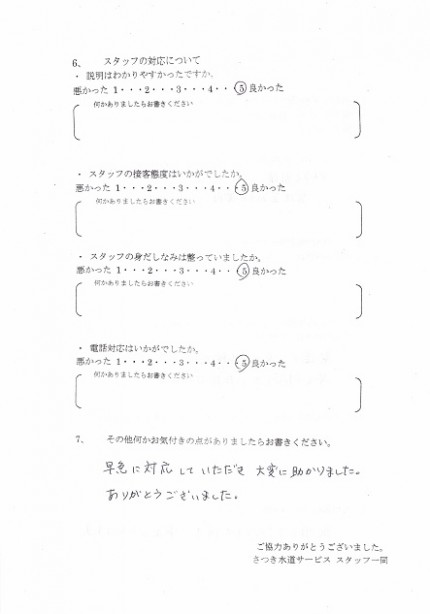 6、 スタッフの対応について
・ 説明はわかりやすかったですか。
悪かった 1・・・2・・・3・・・4・・・5 良かった
何かありましたらお書きください
・ スタッフの接客態度はいかがでしたか。
悪かった 1・・・2・・・3・・・4・・・5 良かった
何かありましたらお書きください
・ スタッフの身だしなみは整っていましたか。
悪かった 1・・・2・・・3・・・4・・・5 良かった
何かありましたらお書きください
・ 電話対応はいかがでしたか。
悪かった 1・・・2・・・3・・・4・・・5 良かった
何かありましたらお書きください
7、 その他何かお気付きの点がありましたらお書きください。
早急に対応していただき 大変に助かりました。
ありがとうございました。
ご協力ありがとうございました。
さつき水道サービス スタッフ一同